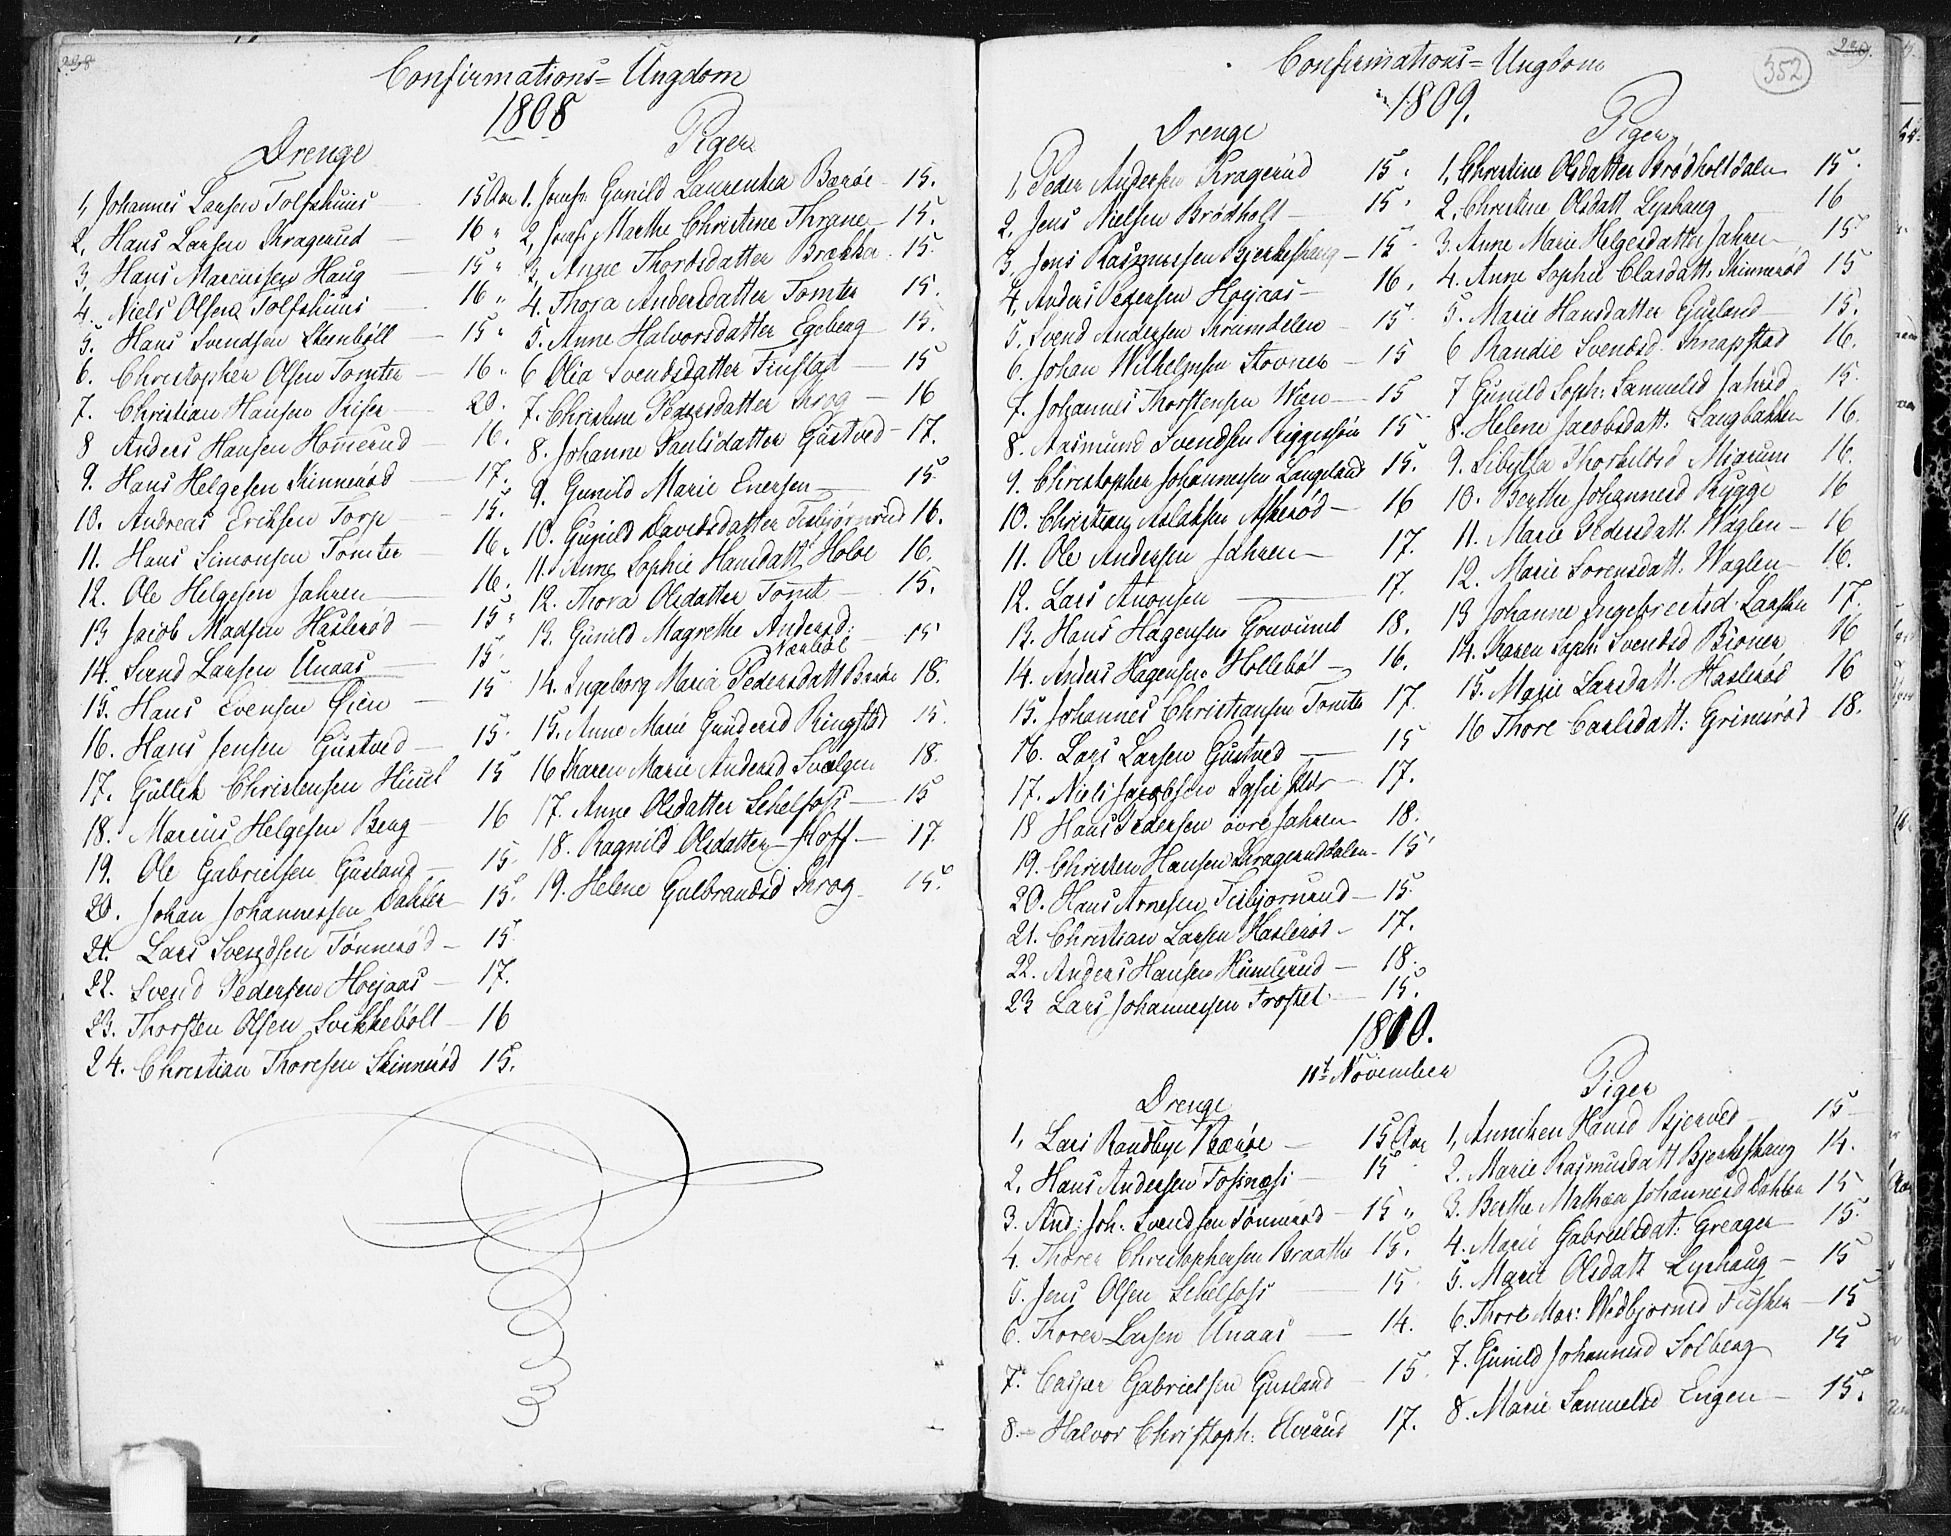 Confirmations=Ungdom
1808
Drenge
1, Johannes Larsen Tolfshuus — 15 Aar
2, Hans Larsen Kragerud — 16 "
3, Hans Marcussen Haug — 15 "
4. Niels Olsen Tolfshuus — 16 "
5. Hans Svendsen Steenbøll — 15 "
6. Christopher Olsen Tomter — 16 "
7. Christian Hansen Riser — 20.
8 Anders Hansen Homerud — 16.
9. Hans Helgesen Skinnerød — 17.
10. Andreas Eriksen Torp — 15.
11. Hans Simonsen Tomter — 16.
12. Ole Helgesen Jahren — 16.
13 Jacob Madsen Haslerød — 15 "
14. Svend Larsen Unaas — 15.
15. Hans Evensen Øien — 15
16. Hans Jensen Gustved — 15.
17. Gullik Christensen 15
18. Marcus Helgesen Berg — 16
19. Ole Gabrielsen Gusland — 15.
20. Johan Johannessen Dahler 15.
21. Lars Svendsen Tønnerød — 15
22. Svend Pedersen Hoejaas — 17.
23. Thorsten Olsen Svikkebøll — 16
24. Christian Thoresen Skinnerød 15.
Piger
1. Jomfr. Gunild Laurentia Barøe — 15.
2, Jomfr. Marthe Christine Thrane — 15.
3, Anne Thordsdatter Brække. 15.
4. Thora Andersdatter Tomter 15.
5. Anne Halvorsdatter Egeberg — 15.
6 Olia Svendsdatter Finstad — 15
7. Christine Pedersdatter Krog — 16
8. Johanne Paulsdatter Gustved — 17.
9. Gunild Marie Enersen — 15
10. Gunild Davidsdatter Tisbjørnrud 16.
11. Anne Sophie Hansdatt. Holøe 16.
12. Thora Olsdatter Tomt — 15.
13. Gunild Magrethe Andersd: Nærbøl — 15
14. Ingeborg Maria Pedersdatt Barøe 18.
15. Anne Marie Gundersd Ringstad 15.
16 Karen Marie Andersd Svalgen 18.
17. Anne Olsdatter Skelfoss — 15
18. Ragnild Olsdatter Hoff — 17.
19. Helene Gulbrandsd Krog — 15.
Confirmations=Ungdom
352
1809.
Drenge
1, Peder Andersen Kragerud 15.
2. Jens Nielsen Brødholt — 15.
3, Jens Rasmussen Bjerkeshaug — 15.
4, Anders Pedersen Hoejaas — 16.
5. Svend Andersen Krumdelen — 15
6. Johan Wilhelmsen Stovner — 15
7. Johannes Thorstensen Wien — 15
8. Aasmund Svendsen 15
9. Christopher Johannesen Langeland 15.
10. Christian Aslaksen Askerød — 16
11. Ole Andersen Jahren — 17.
12. Lars Amonsen — 17.
13. Hans Hagensen 18.
14. Anders Hagensen Hollebøl — 16.
15. Johannes Christiansen Tomte 17.
16. Lars Larsen Gustved — 15
17. Niels Jacobsen 17.
18 Hans Pedersen øvre Jahren — 18.
19. Christen Hansen Krageruddalen — 15
20. Hans Arnesen Tisbjørnrud — 15.
21. Christian Larsen Haslerød — 17.
22. Anders Hansen Humlerud — 18.
23 Lars Johannessen Frostet — 15.
Piger
1, Christine Olsdatter Brødholtdalen 15.
2, Christine Olsdatt. Lyshaug 16
3. Anne Marie Helgesdatter Jahren — 15
4. Anne Sophie Clasdatt. Skinnerød 15
5. Marie Hansdatter Gusland — 15.
6 Randie Svendsd. Knapstad 16.
7 Gunild Soph: Samuelsd Jahrød 15
8. Helene Jacobsdatt. Langbakken 16.
9. Sibylla Thorkildsd Migrum 16.
10. Berthe Johannesd Rygge 16
11. Marie Pedersdatt. Waglen — 16
12. Marie Sørensdatt. Waglen — 16.
13 Johanne Ingebrectsd. Laasken 17.
14. Karen Soph: Svendsd Bioner 16
15. Marie Larsdatt. Haslerød 16
16 Thore Carlsdatt: Grimsrød 18.
1810.
11t November
Drenge
1, Lars Randbye Barøe — 15 Aar
2, Hans Andersen Fossnæss — 15
3. And: Joh. Svendsen Tønnerød — 15 "
4. Thorer Christophersen Braathe 15.
5. Jens Olsen Skelfoss — 15.
6. Thorer Larsen Unaas — 14.
7. Casper Gabrielsen Gusland — 15.
8. Halvor Christoph: 17.
Piger
1, Anniken Hansd Bjerved — 15
2. Marie Rasmusdatt Bjerkeshaug 14.
3. Berthe Mathea Johannesd Dahler 15
4. Marie Gabrielsdat: Greager — 15
5. Marie Olsdatt Lyshaug — 15
6. Thore Mar: Wedbjørnsd Fusker — 15
7. Gunild Johannesd Solberg 15
8. Marie Samuelsd Engen — 15.